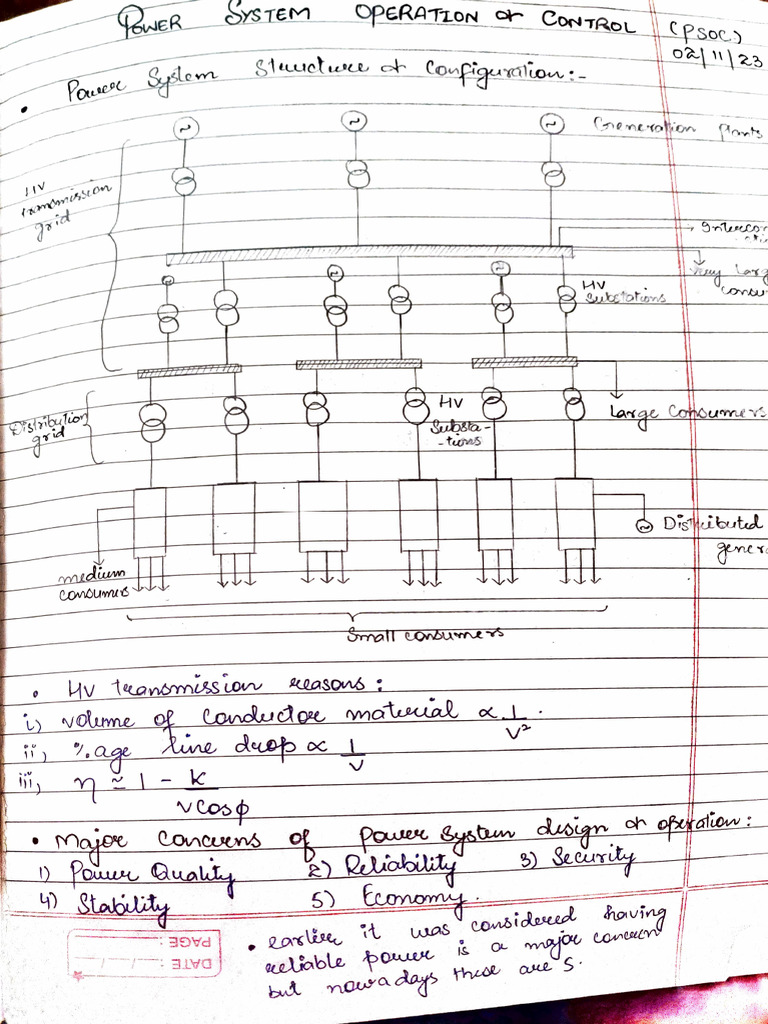 POWER SYSTEM OPERATION & CONTROL (PSOC)
02/11/23
• Power System Structure & Configuration:-
~ ~ ~ Generation plants
HV transmission grid
Very larg
~ ~ ~
HV Substations
Distribution grid
HV Substa-
-tions
Large Consumers
~ Distributed
medium consumers
Small consumers
• HV transmission reasons:
i) volume of conductor material ∝ 1/V².
ii, %age line drop ∝ 1/V
iii, η ≃ 1 - k/vcosφ
• Major concerns of power system design & operation:
1) Power Quality 2) Reliability 3) Security
4) Stability 5) Economy.
• earlier it was considered having
reliable power is a major concern
but nowadays these are 5.
PAGE:
DATE: